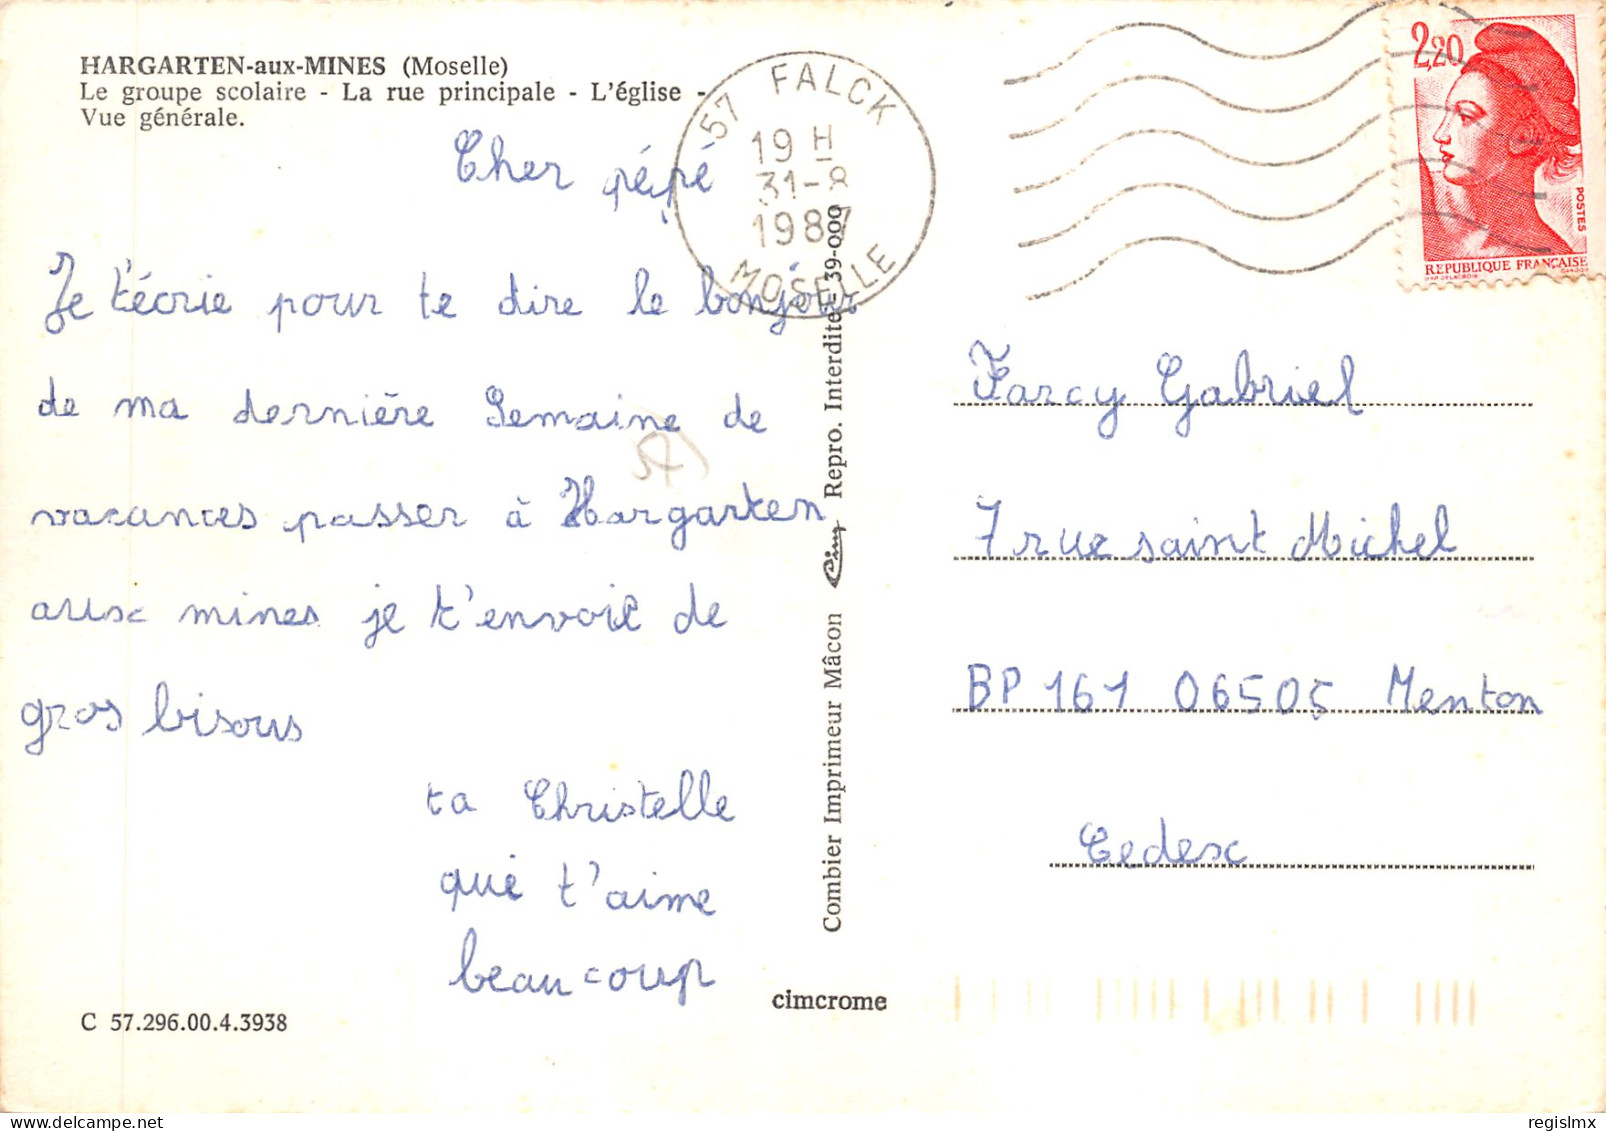 HARGARTEN-aux-MINES (Moselle)
Le groupe scolaire - La rue principale - L'église -
Vue générale.
57 FALCK
19 H
31-8
1987
MOSELLE
2,20
POSTES
REPUBLIQUE FRANÇAISE
Cher pépé
Je t'écrie pour te dire le bonjour
de ma dernière semaine de
vacances passer à Hargarten
aux mines je t'envoie de
gros bisous
ta Christelle
que t'aime
beaucoup
57
Combier Imprimeur Mâcon Cim Repro. Interdite - 39-000
Farcy Gabriel
7 rue saint Michel
BP 161 06505 Menton
Cedex
cimcrome
C 57.296.00.4.3938
delcampe.net
regislmx